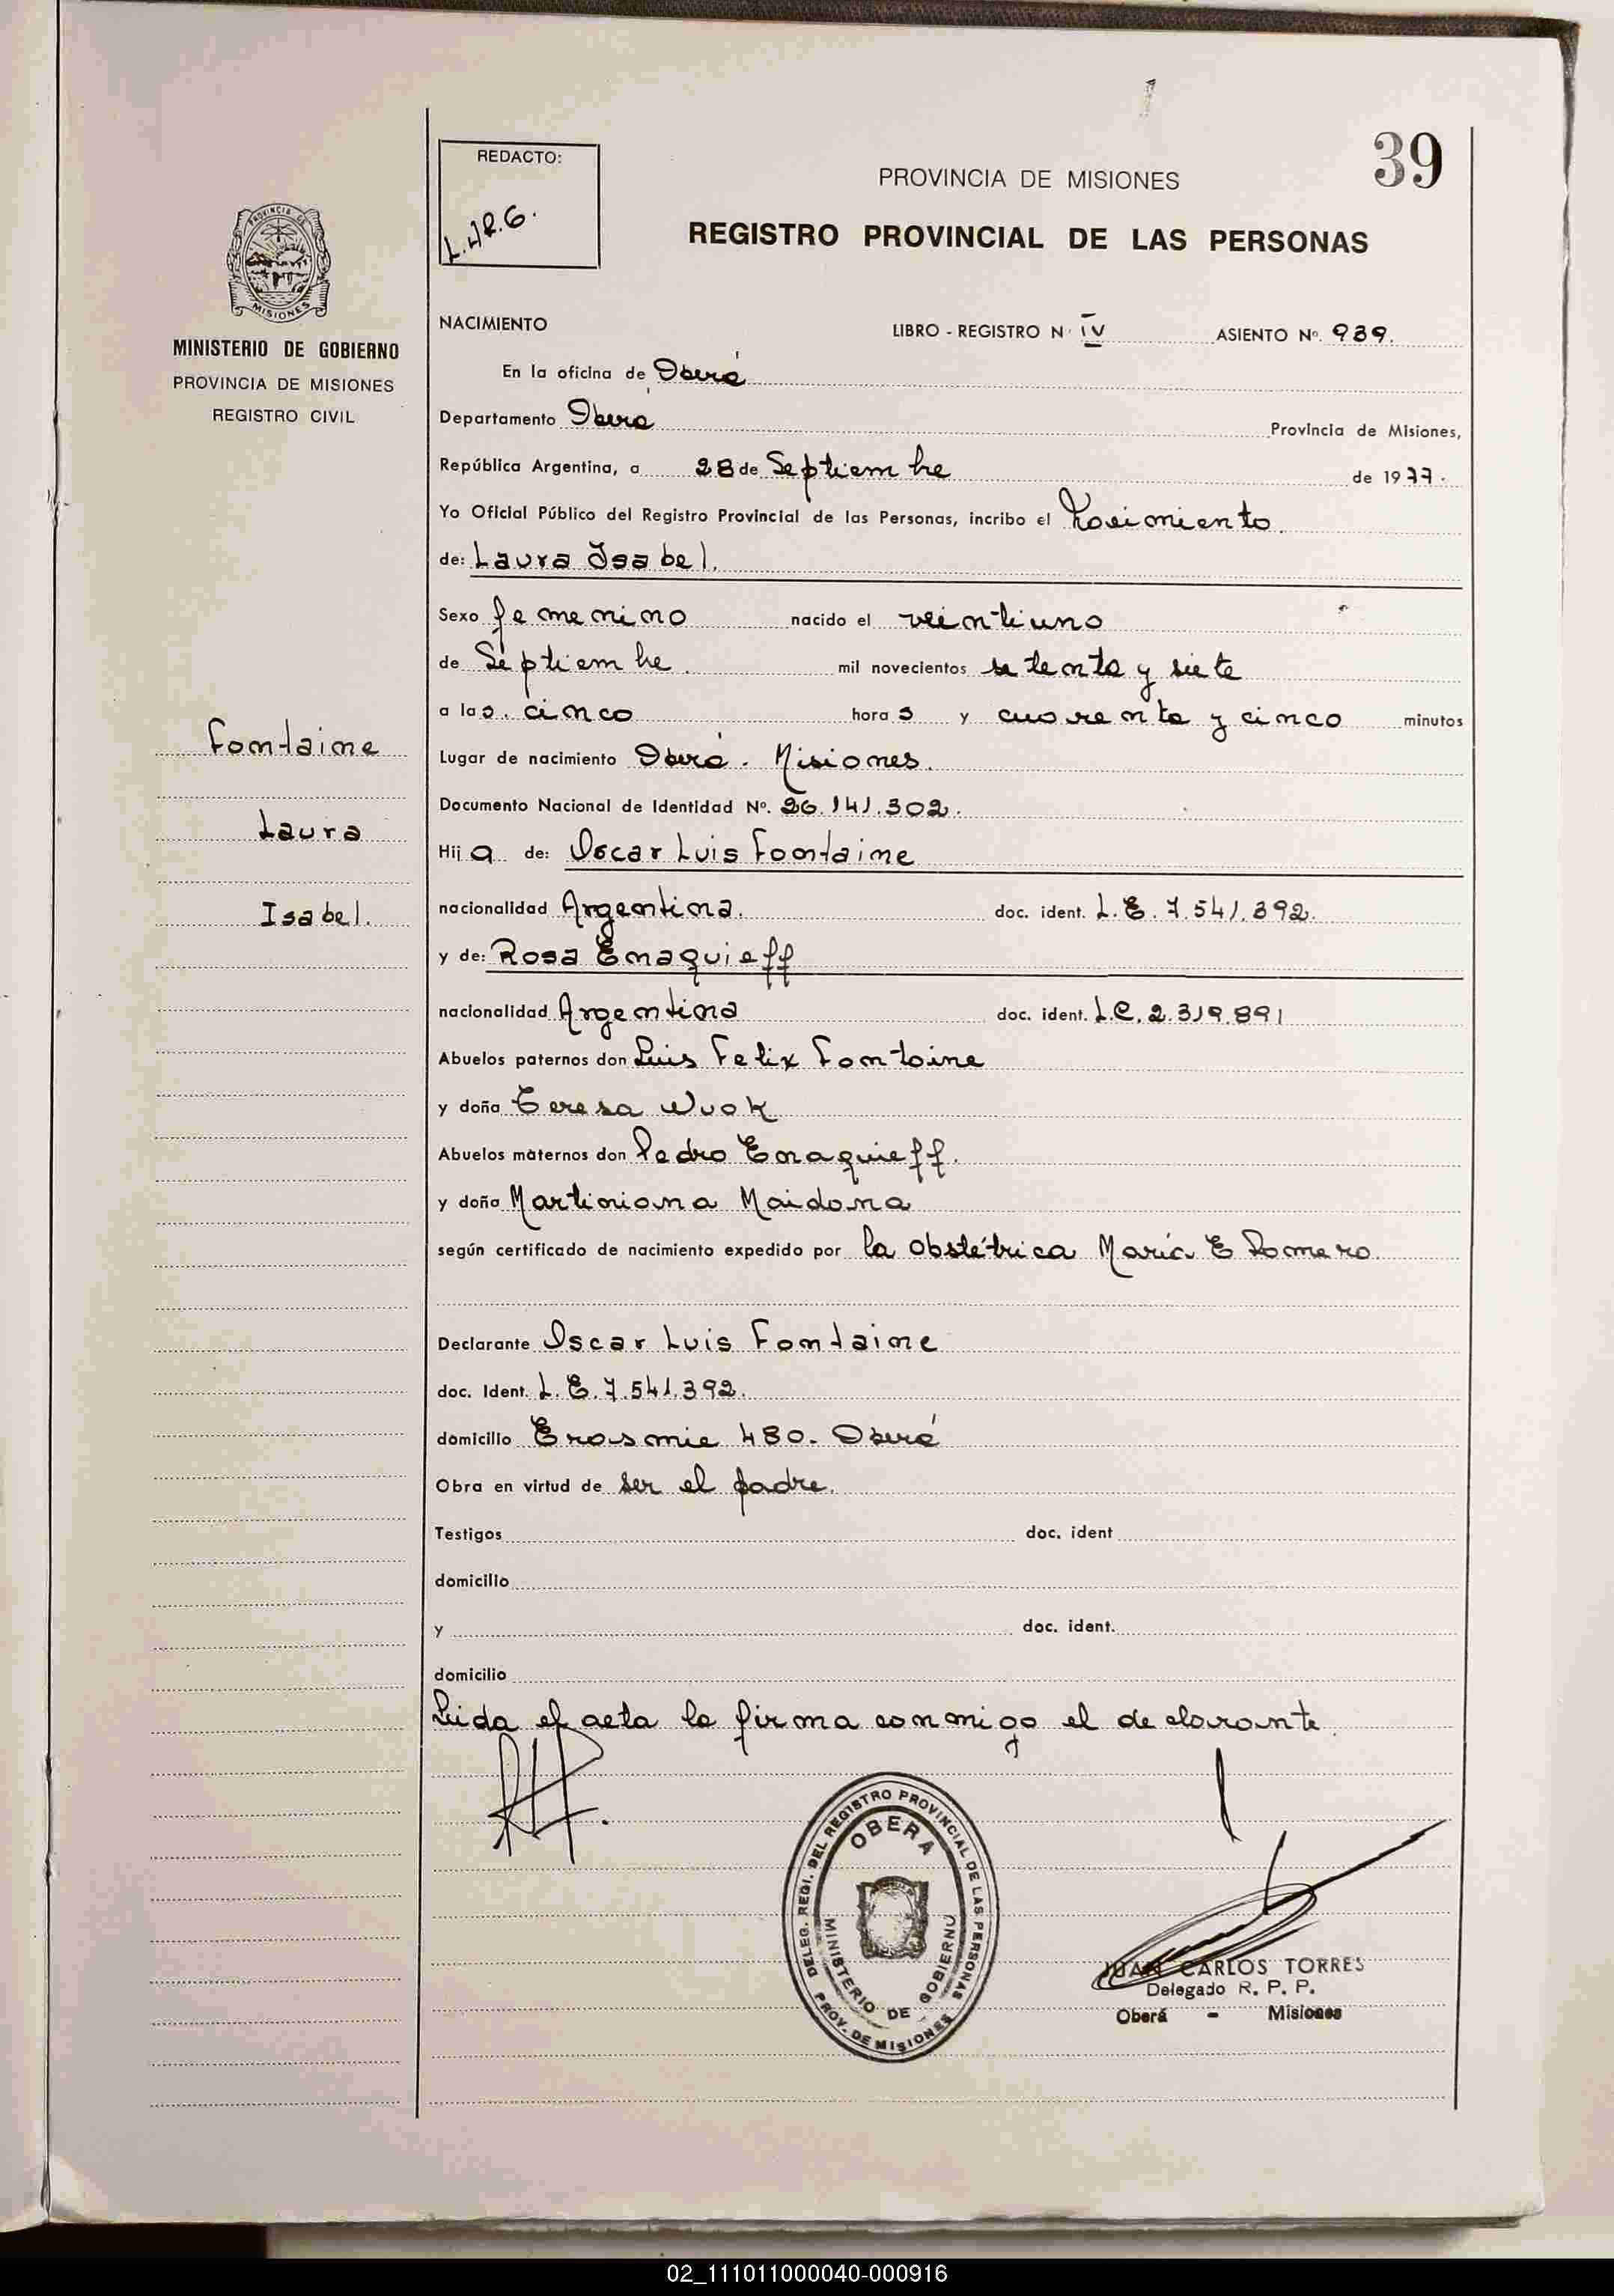 39
REDACTO:
L.A.R.G.
PROVINCIA DE MISIONES
REGISTRO PROVINCIAL DE LAS PERSONAS
PROVINCIA DE
MISIONES
MINISTERIO DE GOBIERNO
PROVINCIA DE MISIONES
REGISTRO CIVIL
Fontaine
Laura
Isabel.
NACIMIENTO LIBRO - REGISTRO N IV ASIENTO Nº. 939.
En la oficina de Oberá
Departamento Oberá Provincia de Misiones,
República Argentina, a 28 de Septiembre de 1977.
Yo Oficial Público del Registro Provincial de las Personas, incribo el Nacimiento.
de: Laura Isabel.
Sexo femenino nacido el veintiuno
de Septiembre. mil novecientos setenta y siete
a las. cinco horas y cuarenta y cinco minutos
Lugar de nacimiento Oberá. Misiones.
Documento Nacional de Identidad Nº. 26.141.302.
Hija de: Oscar Luis Fontaine
nacionalidad Argentina. doc. ident. L.E. 7.541.392.
y de: Rosa Enaquieff
nacionalidad Argentina doc. ident. L.C. 2.319.891
Abuelos paternos don Luis Felix Fontaine
y doña Teresa Wuok
Abuelos maternos don Pedro Enaquieff.
y doña Martiniana Maidana
según certificado de nacimiento expedido por la obstétrica María E Romero.
Declarante Oscar Luis Fontaine
doc. Ident. L.E. 7.541.392.
domicilio Erasmie 480. Oberá
Obra en virtud de ser el padre.
Testigos doc. ident
domicilio
y doc. ident.
domicilio
Leida el acta la firma conmigo el declarante.
DELEG. REGI. DEL REGISTRO PROVINCIAL DE LAS PERSONAS
PROV. DE MISIONES
OBERA
MINISTERIO DE GOBIERNO
JUAN CARLOS TORRES
Delegado R. P. P.
Oberá - Misiones
02_111011000040-000916